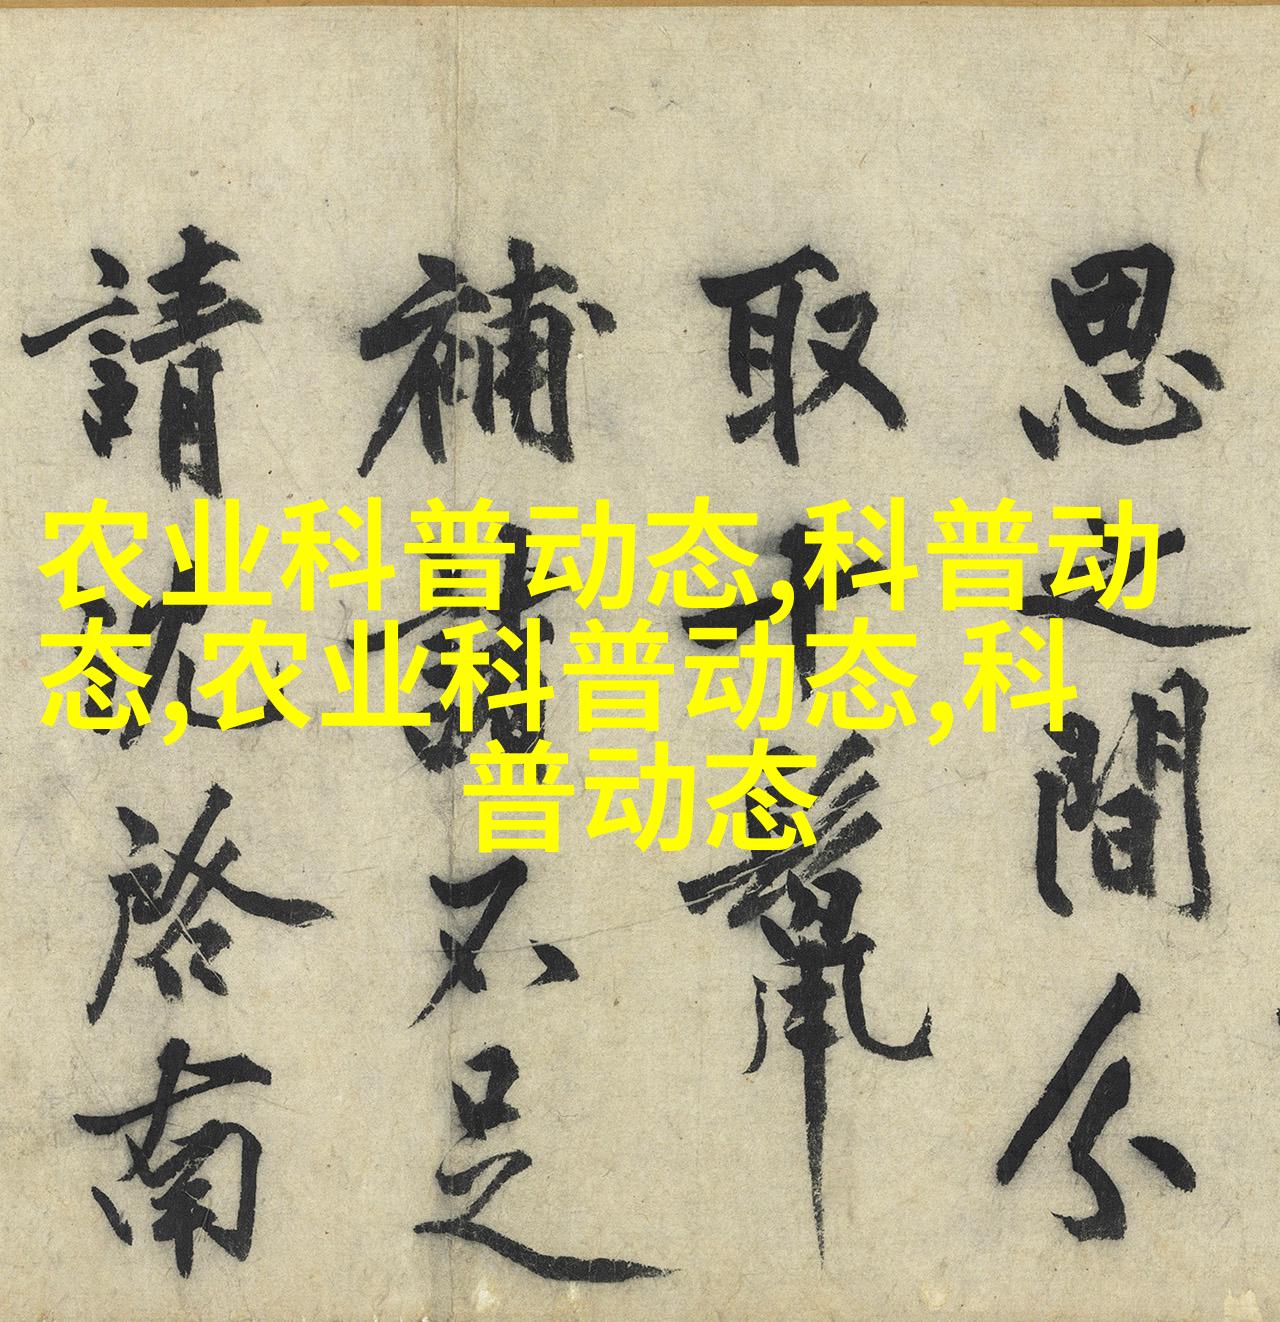 农业科普动态,科普动
态,农业科普动态,科
普动态
思之間分
取十鬣
補諸不足
請沈啓南